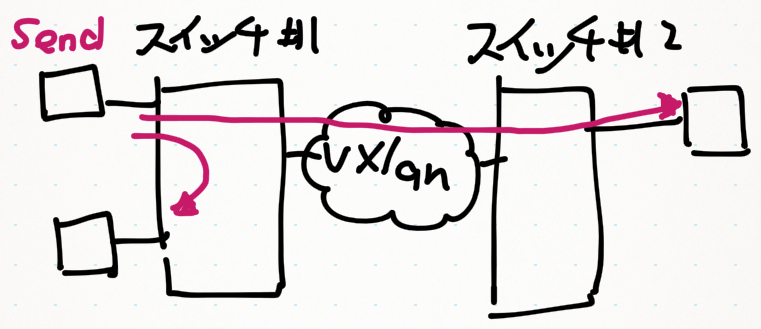 Send スイッチ#1 スイッチ#2
vxlan